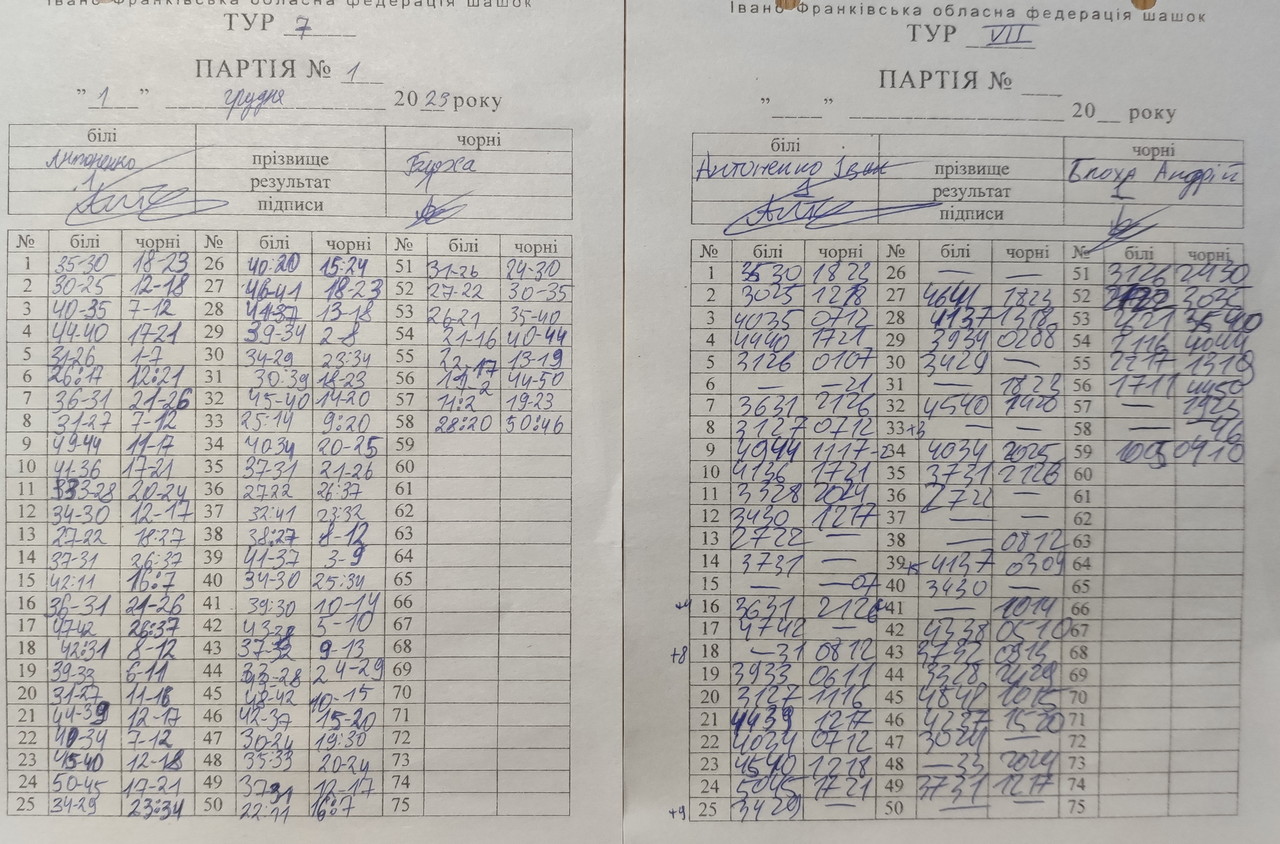 Івано Франківська обласна федерація шашок
ТУР 7
ПАРТІЯ № 1
" 1 " грудня 2023 року
білі чорні
Антоненко прізвище
1 результат
підписи
№ білі чорні № білі чорні № білі чорні
1 35-30 18-23 26 40:20 15:24 51 31-26 24-30
2 30-25 12-18 27 46-41 18-23 52 27-22 30-35
3 40-35 7-12 28 41-37 13-18 53 26-21 35-40
4 44-40 17-21 29 39-34 2-8 54 21-16 40-44
5 31-26 1-7 30 34-29 23:34 55 22-17 13-19
6 26:17 12:21 31 30:39 18-23 56 44-50
7 36-31 21-26 32 45-40 14-20 57 11:2 19-23
8 31-27 7-12 33 25:14 9:20 58 28:20 50:46
9 49-44 11-17 34 4034 20-25 59
10 41-36 17-21 35 37-31 21-26 60
11 33-28 20-24 36 27-22 26:37 61
12 34-30 12-17 37 32:41 23:32 62
13 27-22 18:27 38 38:27 8-12 63
14 37-31 26:37 39 41-37 3-9 64
15 42:11 16:7 40 34-30 25:34 65
16 36-31 21-26 41 39:30 10-14 66
17 47-42 26:37 42 5-10 67
18 42:31 8-12 43 37-32 9-13 68
19 39-33 6-11 44 33-28 24-29 69
20 31-27 11-16 45 48-42 10-15 70
21 44-39 12-17 46 42-37 15-20 71
22 40-34 7-12 47 30-24 19:30 72
23 45-40 12-18 48 35:33 20-24 73
24 50-45 17-21 49 37-31 12-17 74
25 34-29 23:34 50 22:11 16:7 75
Івано Франківська обласна федерація шашок
ТУР VII
ПАРТІЯ №
" " 20 року
білі чорні
Антоненко Іван прізвище Блоха Андрій
1 результат
підписи
№ білі чорні № білі чорні № білі чорні
1 3530 1823 26 — — 51 3126 2430
2 3025 1218 27 4641 1823 52 3035
3 4035 0712 28 4137 1318 53 2621 3540
4 4440 1721 29 3934 0208 54 2116 4044
5 3126 0107 30 3429 — 55 2217 1319
6 — —21 31 — 1823 56 1711 4450
7 3631 2126 32 4540 1420 57 — 1923
8 3127 0712 33 +3 — — 58 — —46
9 4944 1117 34 4034 2025 59 1005 0410
10 4136 1721 35 3731 2126 60
11 3328 2024 36 2722 — 61
12 3430 1217 37 — — 62
13 2722 — 38 — 0812 63
14 3731 — 39 4137 0309 64
15 — —07 40 3430 — 65
+4 16 3631 2126 41 — 1014 66
17 4742 — 42 4338 0510 67
+8 18 —31 0812 43 3732 0913 68
19 3933 0611 44 3328 2429 69
20 3127 1116 45 1015 70
21 4439 1217 46 4237 1520 71
22 4034 0712 47 3024 — 72
23 4540 1218 48 —33 2024 73
24 5045 1721 49 3731 1217 74
+9 25 3429 — 50 — — 75